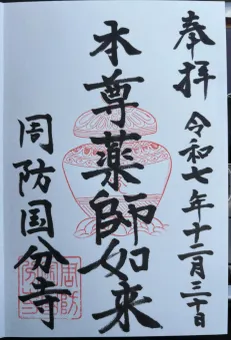 奉拝 令和七年十二月三十日
本尊薬師如来
周防国分寺